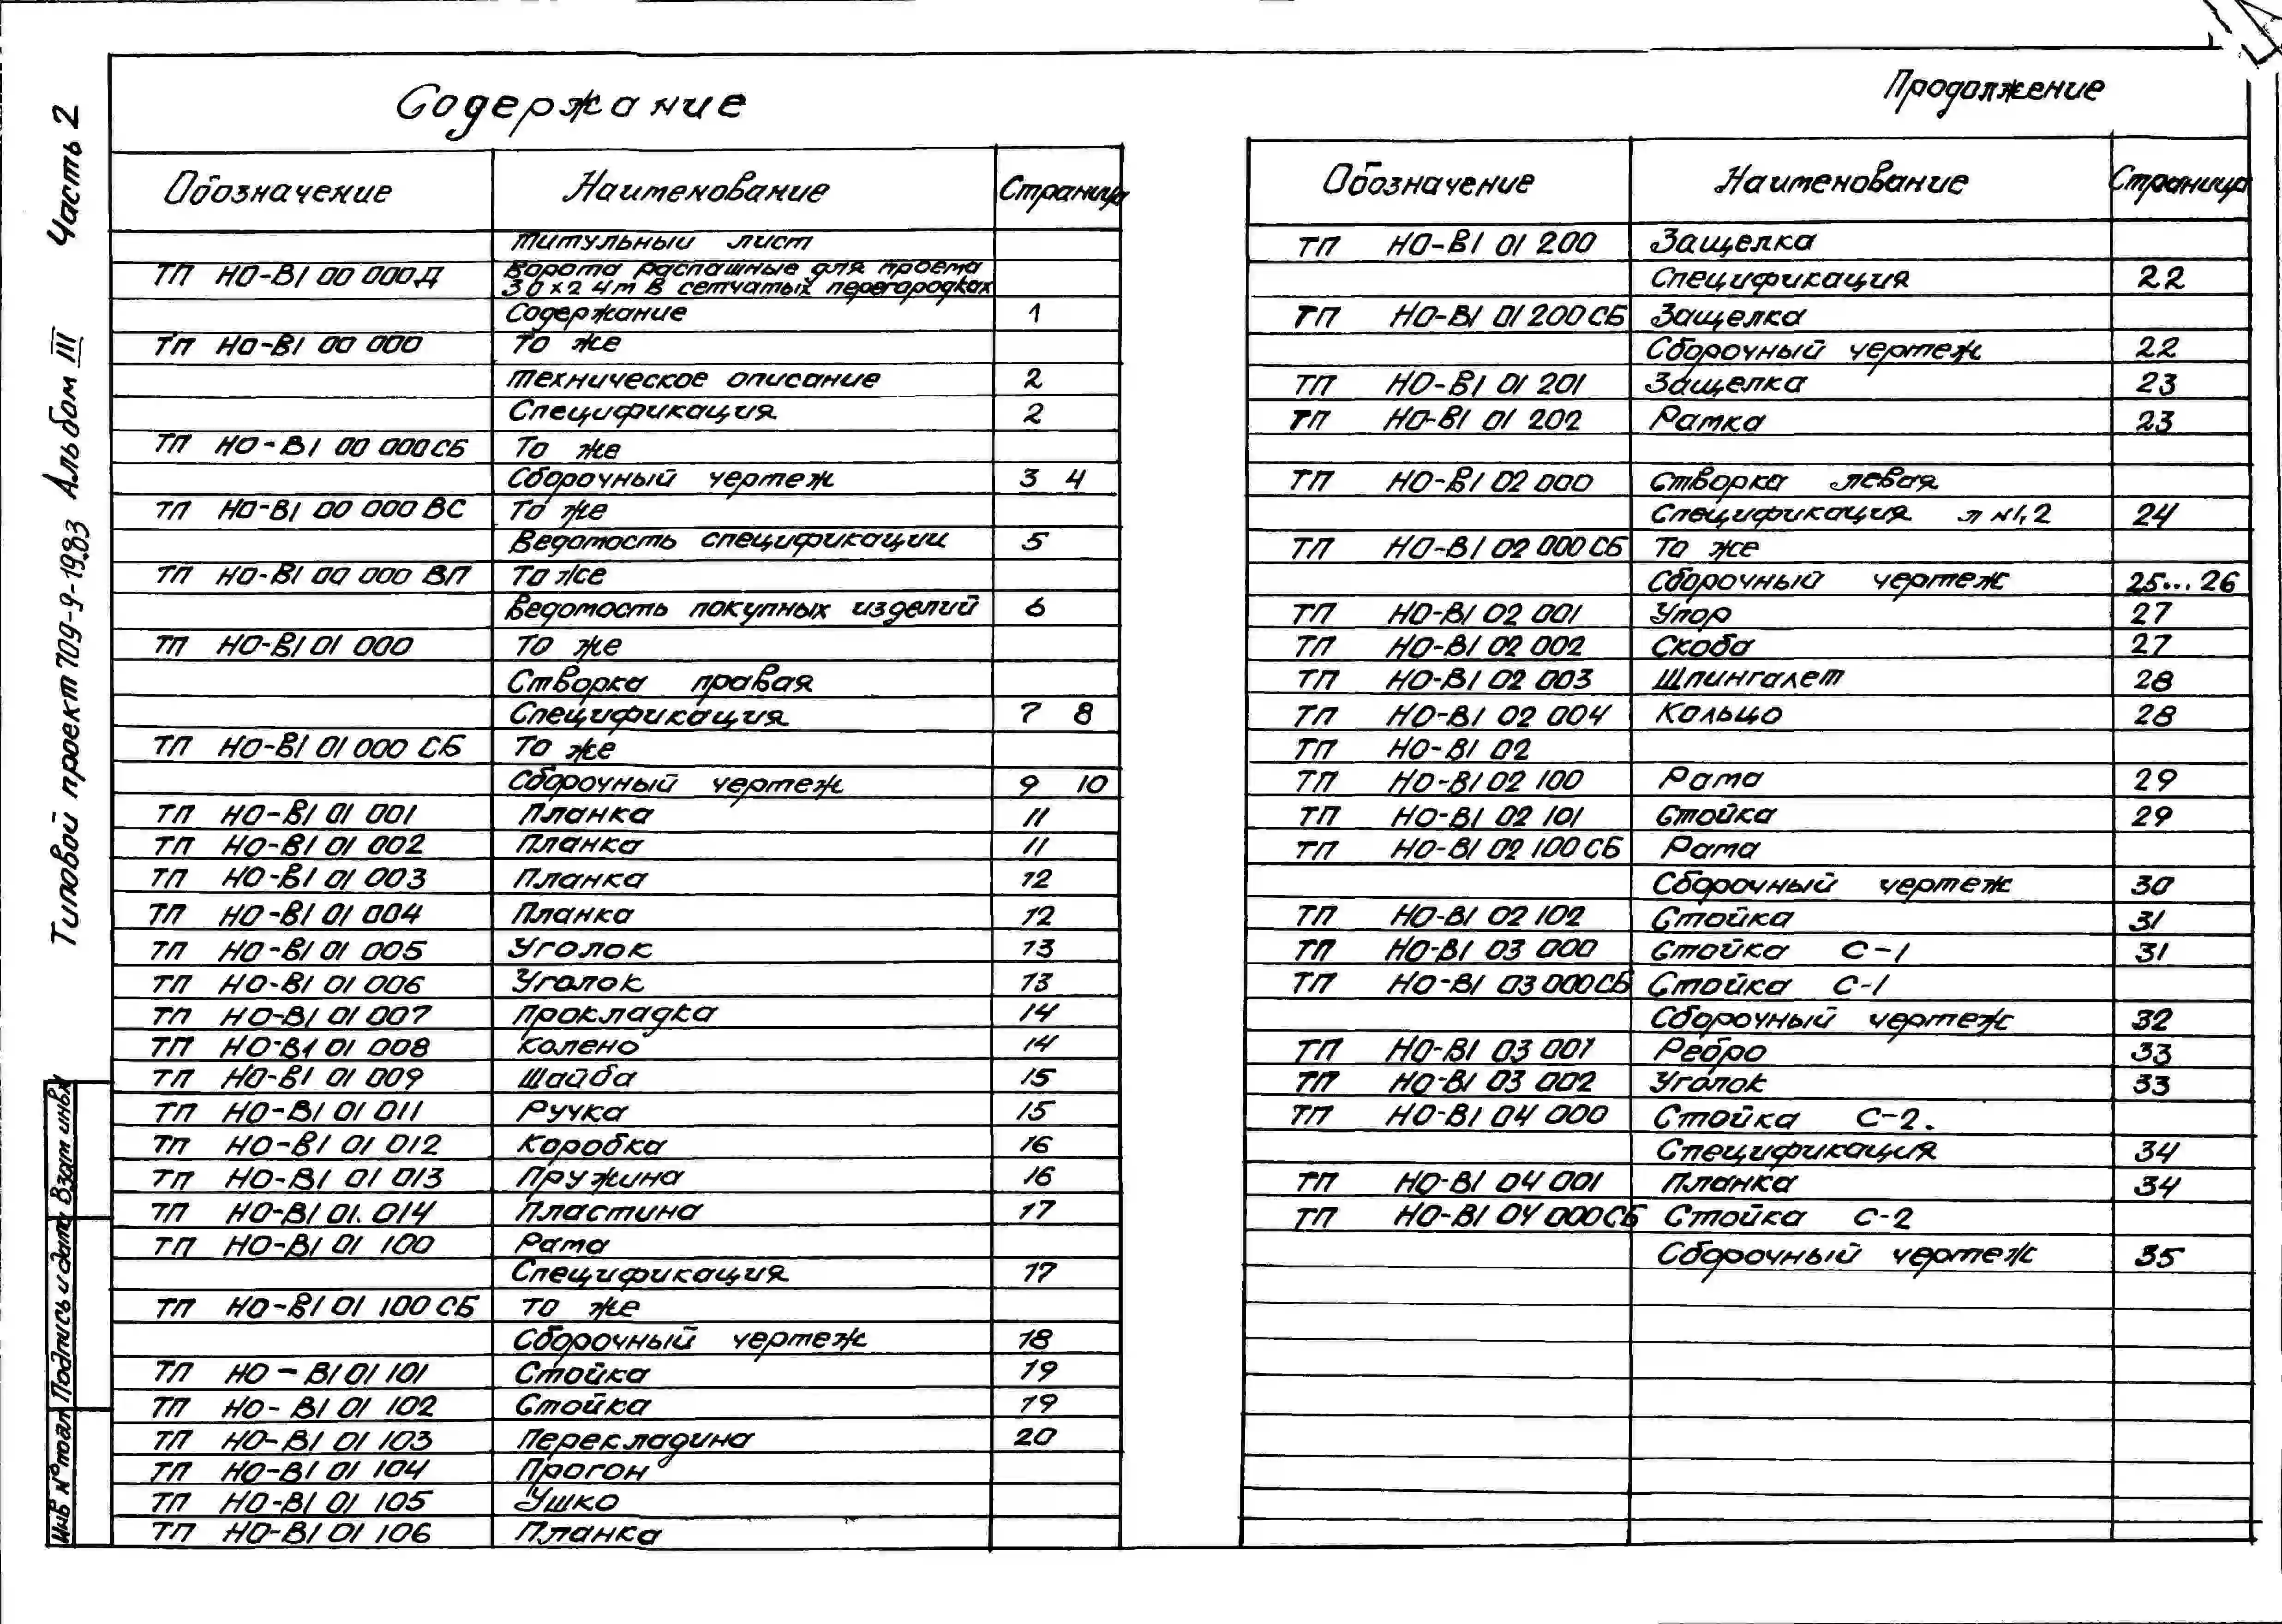 Содержание
Обозначение Наименование Страница
Титульный лист
ТП НО-В1 00 000Д Ворота распашные для проема
3 0 х 2 4 м в сетчатых перегородках
Содержание 1
ТП НО-В1 00 000 То же
Техническое описание 2
Спецификация 2
ТП НО-В1 00 000СБ То же
Сборочный чертеж 3 4
ТП НО-В1 00 000 ВС То же
Ведомость спецификации 5
ТП НО-В1 00 000 ВП То же
Ведомость покупных изделий 6
ТП НО-В1 01 000 То же
Створка правая
Спецификация 7 8
ТП НО-В1 01 000 СБ То же
Сборочный чертеж 9 10
ТП НО-В1 01 001 Планка 11
ТП НО-В1 01 002 Планка 11
ТП НО-В1 01 003 Планка 12
ТП НО-В1 01 004 Планка 12
ТП НО-В1 01 005 Уголок 13
ТП НО-В1 01 006 Уголок 13
ТП НО-В1 01 007 Прокладка 14
ТП НО-В1 01 008 Колено 14
ТП НО-В1 01 009 Шайба 15
ТП НО-В1 01 011 Ручка 15
ТП НО-В1 01 012 Коробка 16
ТП НО-В1 01 013 Пружина 16
ТП НО-В1 01. 014 Пластина 17
ТП НО-В1 01 100 Рама
Спецификация 17
ТП НО-В1 01 100 СБ То же
Сборочный чертеж 18
ТП НО-В1 01 101 Стойка 19
ТП НО-В1 01 102 Стойка 19
ТП НО-В1 01 103 Перекладина 20
ТП НО-В1 01 104 Прогон
ТП НО-В1 01 105 Ушко
ТП НО-В1 01 106 Планка
Продолжение
Обозначение Наименование Страница
ТП НО-В1 01 200 Защелка
Спецификация 22
ТП НО-В1 01 200 СБ Защелка
Сборочный чертеж 22
ТП НО-В1 01 201 Защелка 23
ТП НО-В1 01 202 Рамка 23
ТП НО-В1 02 000 Створка левая
Спецификация л №1, 2 24
ТП НО-В1 02 000 СБ То же
Сборочный чертеж 25... 26
ТП НО-В1 02 001 Упор 27
ТП НО-В1 02 002 Скоба 27
ТП НО-В1 02 003 Шпингалет 28
ТП НО-В1 02 004 Кольцо 28
ТП НО-В1 02
ТП НО-В1 02 100 Рама 29
ТП НО-В1 02 101 Стойка 29
ТП НО-В1 02 100 СБ Рама
Сборочный чертеж 30
ТП НО-В1 02 102 Стойка 31
ТП НО-В1 03 000 Стойка С-1 31
ТП НО-В1 03 000СБ Стойка С-1
Сборочный чертеж 32
ТП НО-В1 03 001 Ребро 33
ТП НО-В1 03 002 Уголок 33
ТП НО-В1 04 000 Стойка С-2.
Спецификация 34
ТП НО-В1 04 001 Планка 34
ТП НО-В1 04 000СБ Стойка С-2
Сборочный чертеж 35
Типовой проект 709-9-19.83 Альбом III Часть 2
Инв № подл Подпись и дата Взам инв №